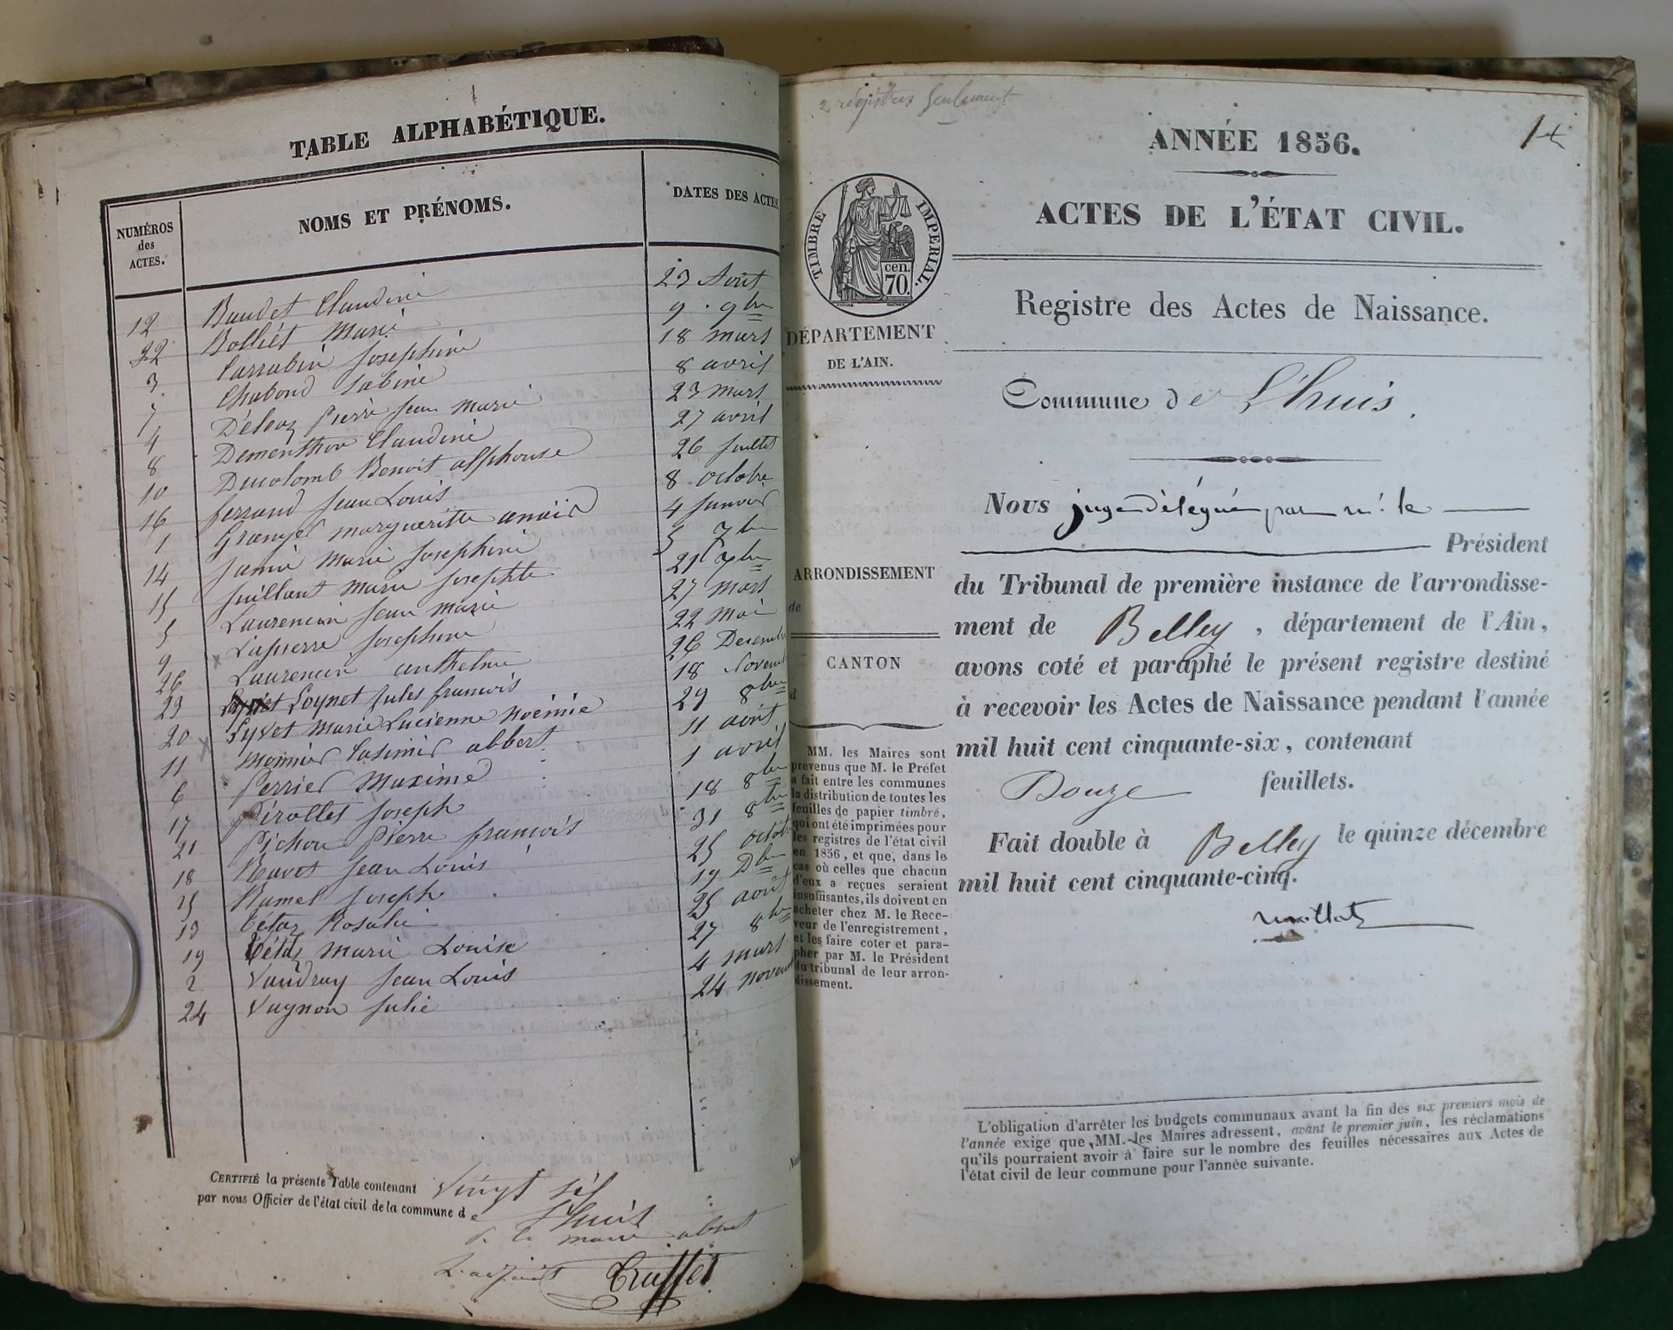 TABLE ALPHABÉTIQUE.
NUMÉROS
des
ACTES.
NOMS ET PRÉNOMS.
DATES DES ACTES
12 Baudet Claudine 23 Août
22 Bolliet Marie 9 9bre
3 Carrabin Josephine 18 mars
7 Chabond Sabine 8 avril
4 Déleaz Pierre Jean Marie 23 mars
8 Dementhon Claudine 27 avril
10 Ducolomb Benoit alphonse 26 juillet
16 ferrand Jean Louis 8 octobre
1 margueritte 4 janvier
14 Janin Marie Josephine 5 7bre
15 Juillant Marie Josephte 21 7bre
5 Laurencin Jean Marie 27 mars
9 Lapierre Josephine 22 Mai
26 Laurencin anthelme 26 Decembre
23 Loynet Jules francois 18 Novem
20 Lyvet Marie Lucienne Noémie 29 8bre
11 Monnier Casimir albert 11 août
6 Perrier Maxime 1 avril
17 Pirollet Joseph 18 8bre
21 Pichon Pierre francois 31 8bre
18 Ravet Jean Louis 25 octob
25 Ramel Joseph 19 Dbre
13 Tétaz Rosalie 25 août
19 Tétaz Marie Louise 27 8bre
2 Vaudray Jean Louis 4 mars
24 Vagnon Julie 24 novem
CERTIFIÉ la présente Table contenant vingt six
par nous Officier de l'état civil de la commune de L'huis
p. le maire absent
L'adjoint Truffet
2 registres seulement
1er
ANNÉE 1856.
ACTES DE L'ÉTAT CIVIL.
TIMBRE IMPERIAL.
cen.
70.
Registre des Actes de Naissance.
DÉPARTEMENT
DE L'AIN.
Commune de L'huis.
Nous juge délégué par mr. le
Président
ARRONDISSEMENT
de
du Tribunal de première instance de l'arrondisse-
ment de Belley, département de l'Ain,
CANTON
d
avons coté et paraphé le présent registre destiné
à recevoir les Actes de Naissance pendant l'année
mil huit cent cinquante-six, contenant
Douze feuillets.
Fait double à Belley le quinze décembre
mil huit cent cinquante-cinq.
MM. les Maires sont
prévenus que M. le Préfet
a fait entre les communes
la distribution de toutes les
feuilles de papier timbré,
qui ont été imprimées pour
les registres de l'état civil
en 1856, et que, dans le
cas où celles que chacun
d'eux a reçues seraient
insuffisantes, ils doivent en
acheter chez M. le Rece-
veur de l'enregistrement,
et les faire coter et para-
pher par M. le Président
du tribunal de leur arron-
dissement.
L'obligation d'arrêter les budgets communaux avant la fin des six premiers mois de
l'année exige que MM. les Maires adressent, avant le premier juin, les réclamations
qu'ils pourraient avoir à faire sur le nombre des feuilles nécessaires aux Actes de
l'état civil de leur commune pour l'année suivante.